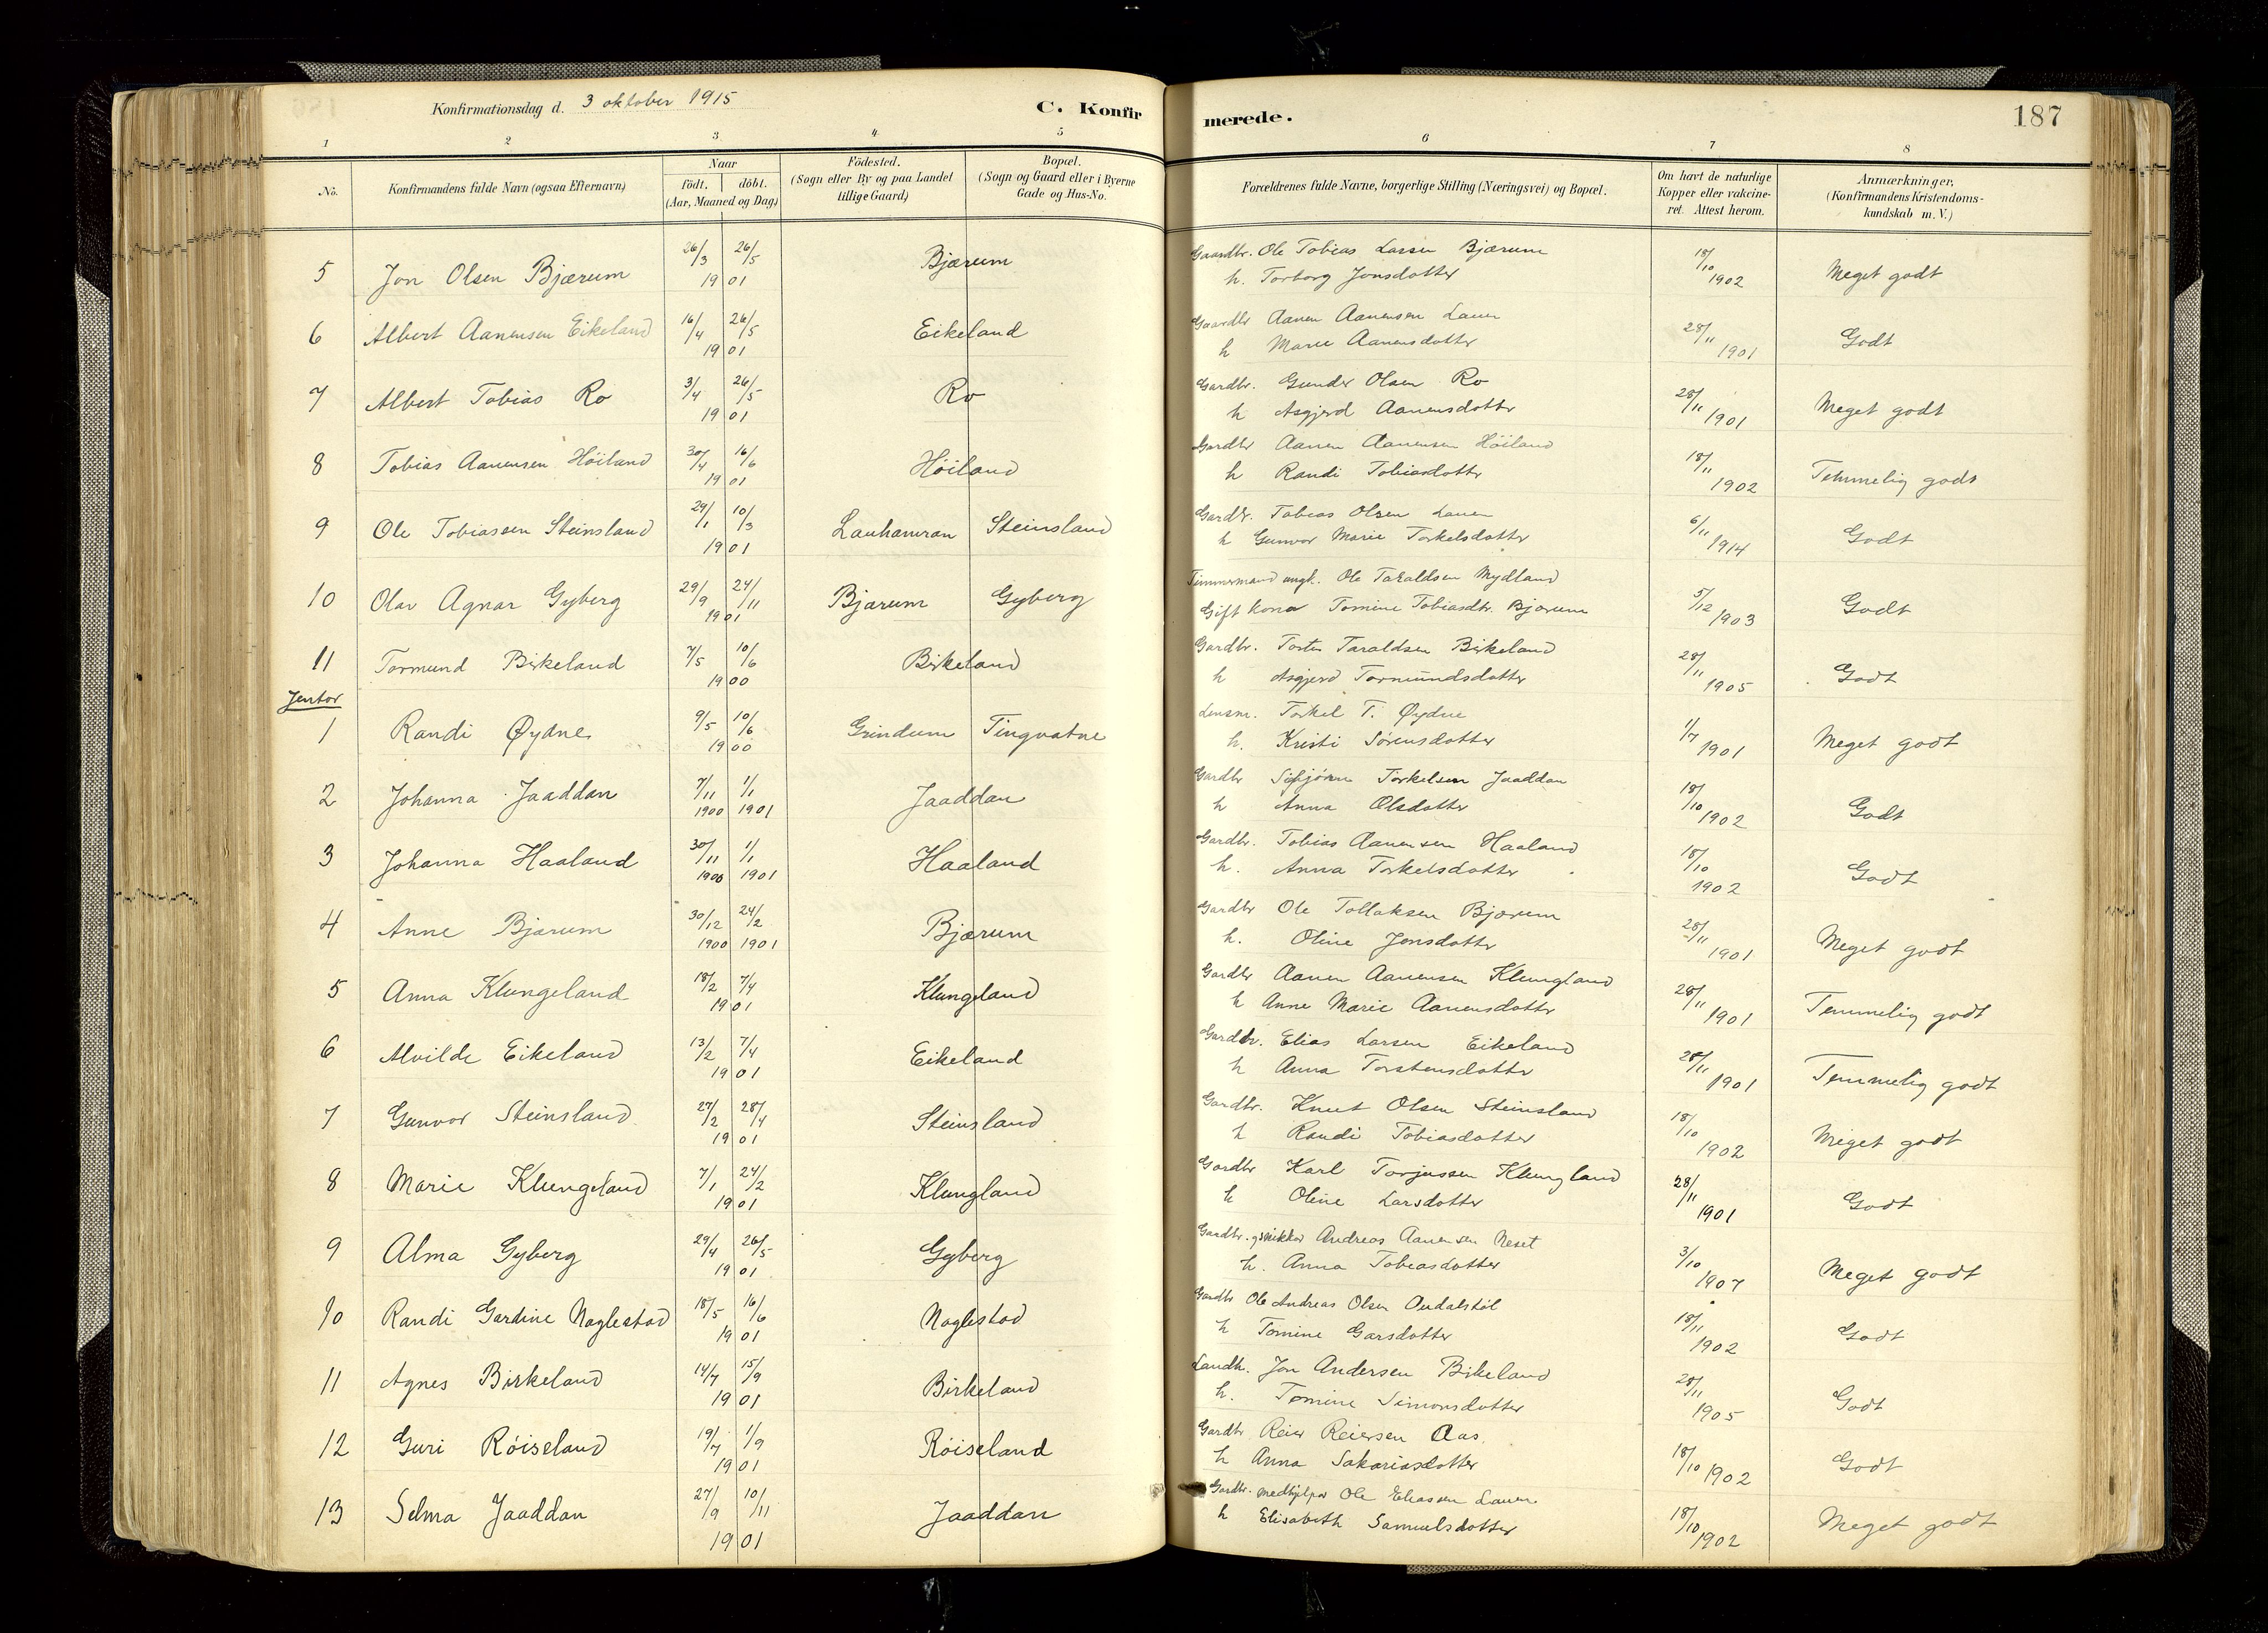 Konfirmationsdag d. 3 oktober 1915 C. Konfirmerede. 187
1 2 3 4 5 6 7 8
No. Konfirmandens fulde Navn (ogsaa Efternavn) Naar födt. döbt. (Aar, Maaned og Dag) Födested. (Sogn eller By og paa Landet tillige Gaard) Bopæl. (Sogn og Gaard eller i Byerne Gade og Hus-No. Forældrenes fulde Navne, borgerlige Stilling (Næringsvei) og Bopæl. Om havt de naturlige Kopper eller vakcineret. Attest herom. Anmærkninger, (Konfirmandens Kristendomskundskab m. V.)
5 Jon Olsen Bjærum 26/3 26/5 1901 Bjærum Gaardbr. Ole Tobias Larsen Bjærum 18/10 1902 Meget godt
h. Torborg Jonsdotter
6 Albert Aanensen Eikeland 16/4 26/5 1901 Eikeland Gaardbr Aanen Aanensen Lauen 28/11 1901 Godt
h Marie Aanensdotter
7 Albert Tobias Ro 3/4 26/5 1901 Ro Gardbr. Gunder Olsen Ro 28/11 1901 Meget godt
h Asgjerd Aanensdotter
8 Tobias Aanensen Höiland 30/4 16/6 1901 Höiland Gardbr Aanen Aanensen Höiland 18/11 1902 Temmelig godt
h Randi Tobiasdotter
9 Ole Tobiassen Steinsland 29/1 10/3 1901 Lauhamran Steinsland Gardbr. Tobias Olsen Lauen 6/11 1914 Godt
h Gunvor Marie Torkelsdotter
10 Olav Agnar Gyberg 29/9 24/11 1901 Bjærum Gyberg Timmermand ungk. Ole Taraldsen Mydland 5/12 1903 Godt
Gift kona Tomine Tobiasdtr. Bjærum
11 Tormund Birkeland 7/5 10/6 1900 Birkeland Gardbr. Torten Taraldsen Birkeland 28/11 1905 Godt
h Asgjerd Tormundsdotter
Jentor
1 Randi Øydne 9/5 10/6 1900 Grindum Tingvatne Lensm. Torkel T. Øydne 1/7 1901 Meget godt
h. Kristi Sörensdotter
2 Johanna Jaaddan 7/11 1900 1/1 1901 Jaaddan Gardbr Sigbjörn Torkelsen Jaaddan 18/10 1902 Godt
h Anna Olsdotter
3 Johanna Haaland 30/11 1900 1/1 1901 Haaland Gardbr. Tobias Aanensen Haaland 18/10 1902 Godt
h. Anna Torkelsdotter
4 Anne Bjærum 30/12 1900 24/2 1901 Bjærum Gardbr Ole Tollaksen Bjærum 28/11 1901 Meget godt
h. Oline Jonsdotter
5 Anna Klungeland 18/2 7/4 1901 Klungeland Gardbr Aanen Aanensen Klungland 28/11 1901 Temmelig godt
h Anne Marie Aanensdotter
6 Alvilde Eikeland 13/2 7/4 1901 Eikeland Gardbr. Elias Larsen Eikeland 28/11 1901 Temmelig godt
h Anna Torstensdotter
7 Gunvor Steinsland 27/2 28/4 1901 Steinsland Gardbr. Knut Olsen Steinsland 18/10 1902 Meget godt
h Randi Tobiasdotter
8 Marie Klungeland 7/1 24/2 1901 Klungland Gardbr Karl Torjussen Klungland 28/11 1901 Godt
h Oline Larsdotter
9 Alma Gyberg 29/4 26/5 1901 Gyberg Gardbr. g snikkar Andreas Aanensen Neset 3/10 1907 Meget godt
h. Anna Tobiasdotter
10 Randi Gardine Naglestad 18/5 16/6 1901 Naglestad Gardbr Ole Andreas Olsen Audalstöl 18/11 1902 Godt
h Tomine Garsdotter
11 Agnes Birkeland 14/7 15/9 1901 Birkeland Landh. Jon Andersen Birkeland 28/11 1905 Godt
h. Tomine Simonsdotter
12 Guri Röiseland 19/7 1/9 1901 Röiseland Gardbr Reier Reiersen Aas. 18/10 1902 Godt
h Anna Sakariasdotter
13 Selma Jaaddan 27/9 10/11 1901 Jaaddan Gardbr. medhjelpar Ole Eliassen Lauen 18/10 1902 Meget godt
h Elisabeth Samuelsdotter